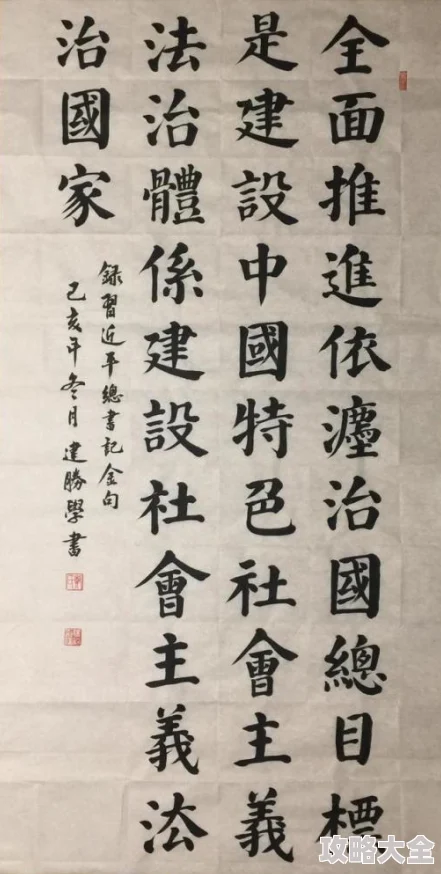 全面推進依灋治國總目標
是建設中國特色社會主義
法治體係建設社會主義法
治國家
錄習近平總書記金句
己亥年冬月建勝學書
攻略大全